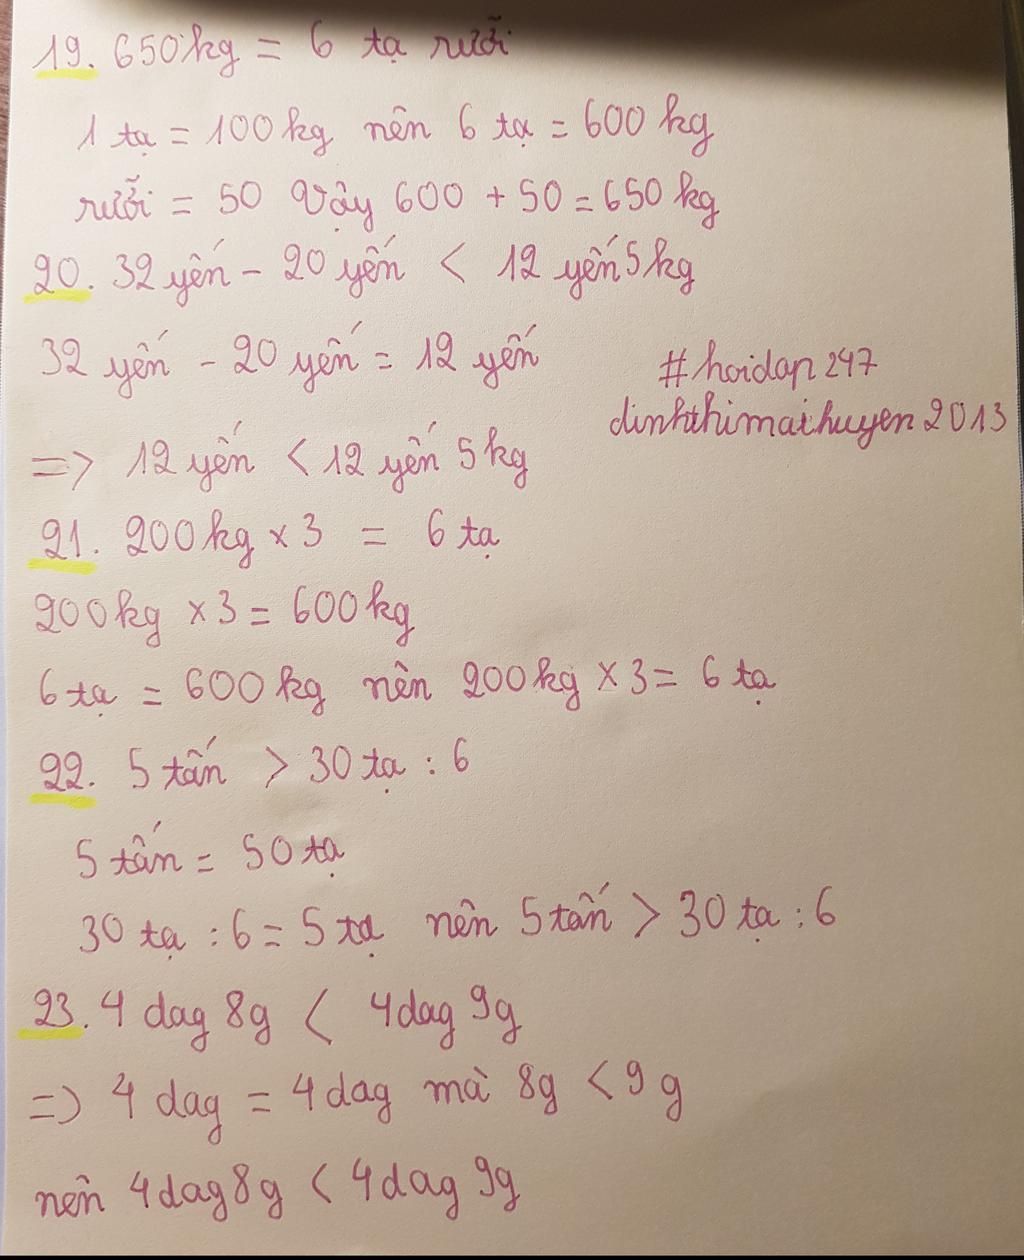 19. 650kg = 6 tạ rưỡi
1 tạ = 100 kg nên 6 tạ = 600 kg
rưỡi = 50 Vậy 600 + 50 = 650 kg
20. 32 yến - 20 yến < 12 yến 5 kg
32 yến - 20 yến = 12 yến
#hoidap247
dinhthimaihuyen2013
=> 12 yến < 12 yến 5 kg
21. 200 kg x 3 = 6 tạ
200 kg x 3 = 600 kg
6 tạ = 600 kg nên 200 kg x 3 = 6 tạ
22. 5 tấn > 30 tạ : 6
5 tấn = 50 tạ
30 tạ : 6 = 5 tạ nên 5 tấn > 30 tạ : 6
23. 4 dag 8g < 4dag 9g
=> 4 dag = 4 dag mà 8g < 9 g
nên 4dag 8g < 4dag 9g